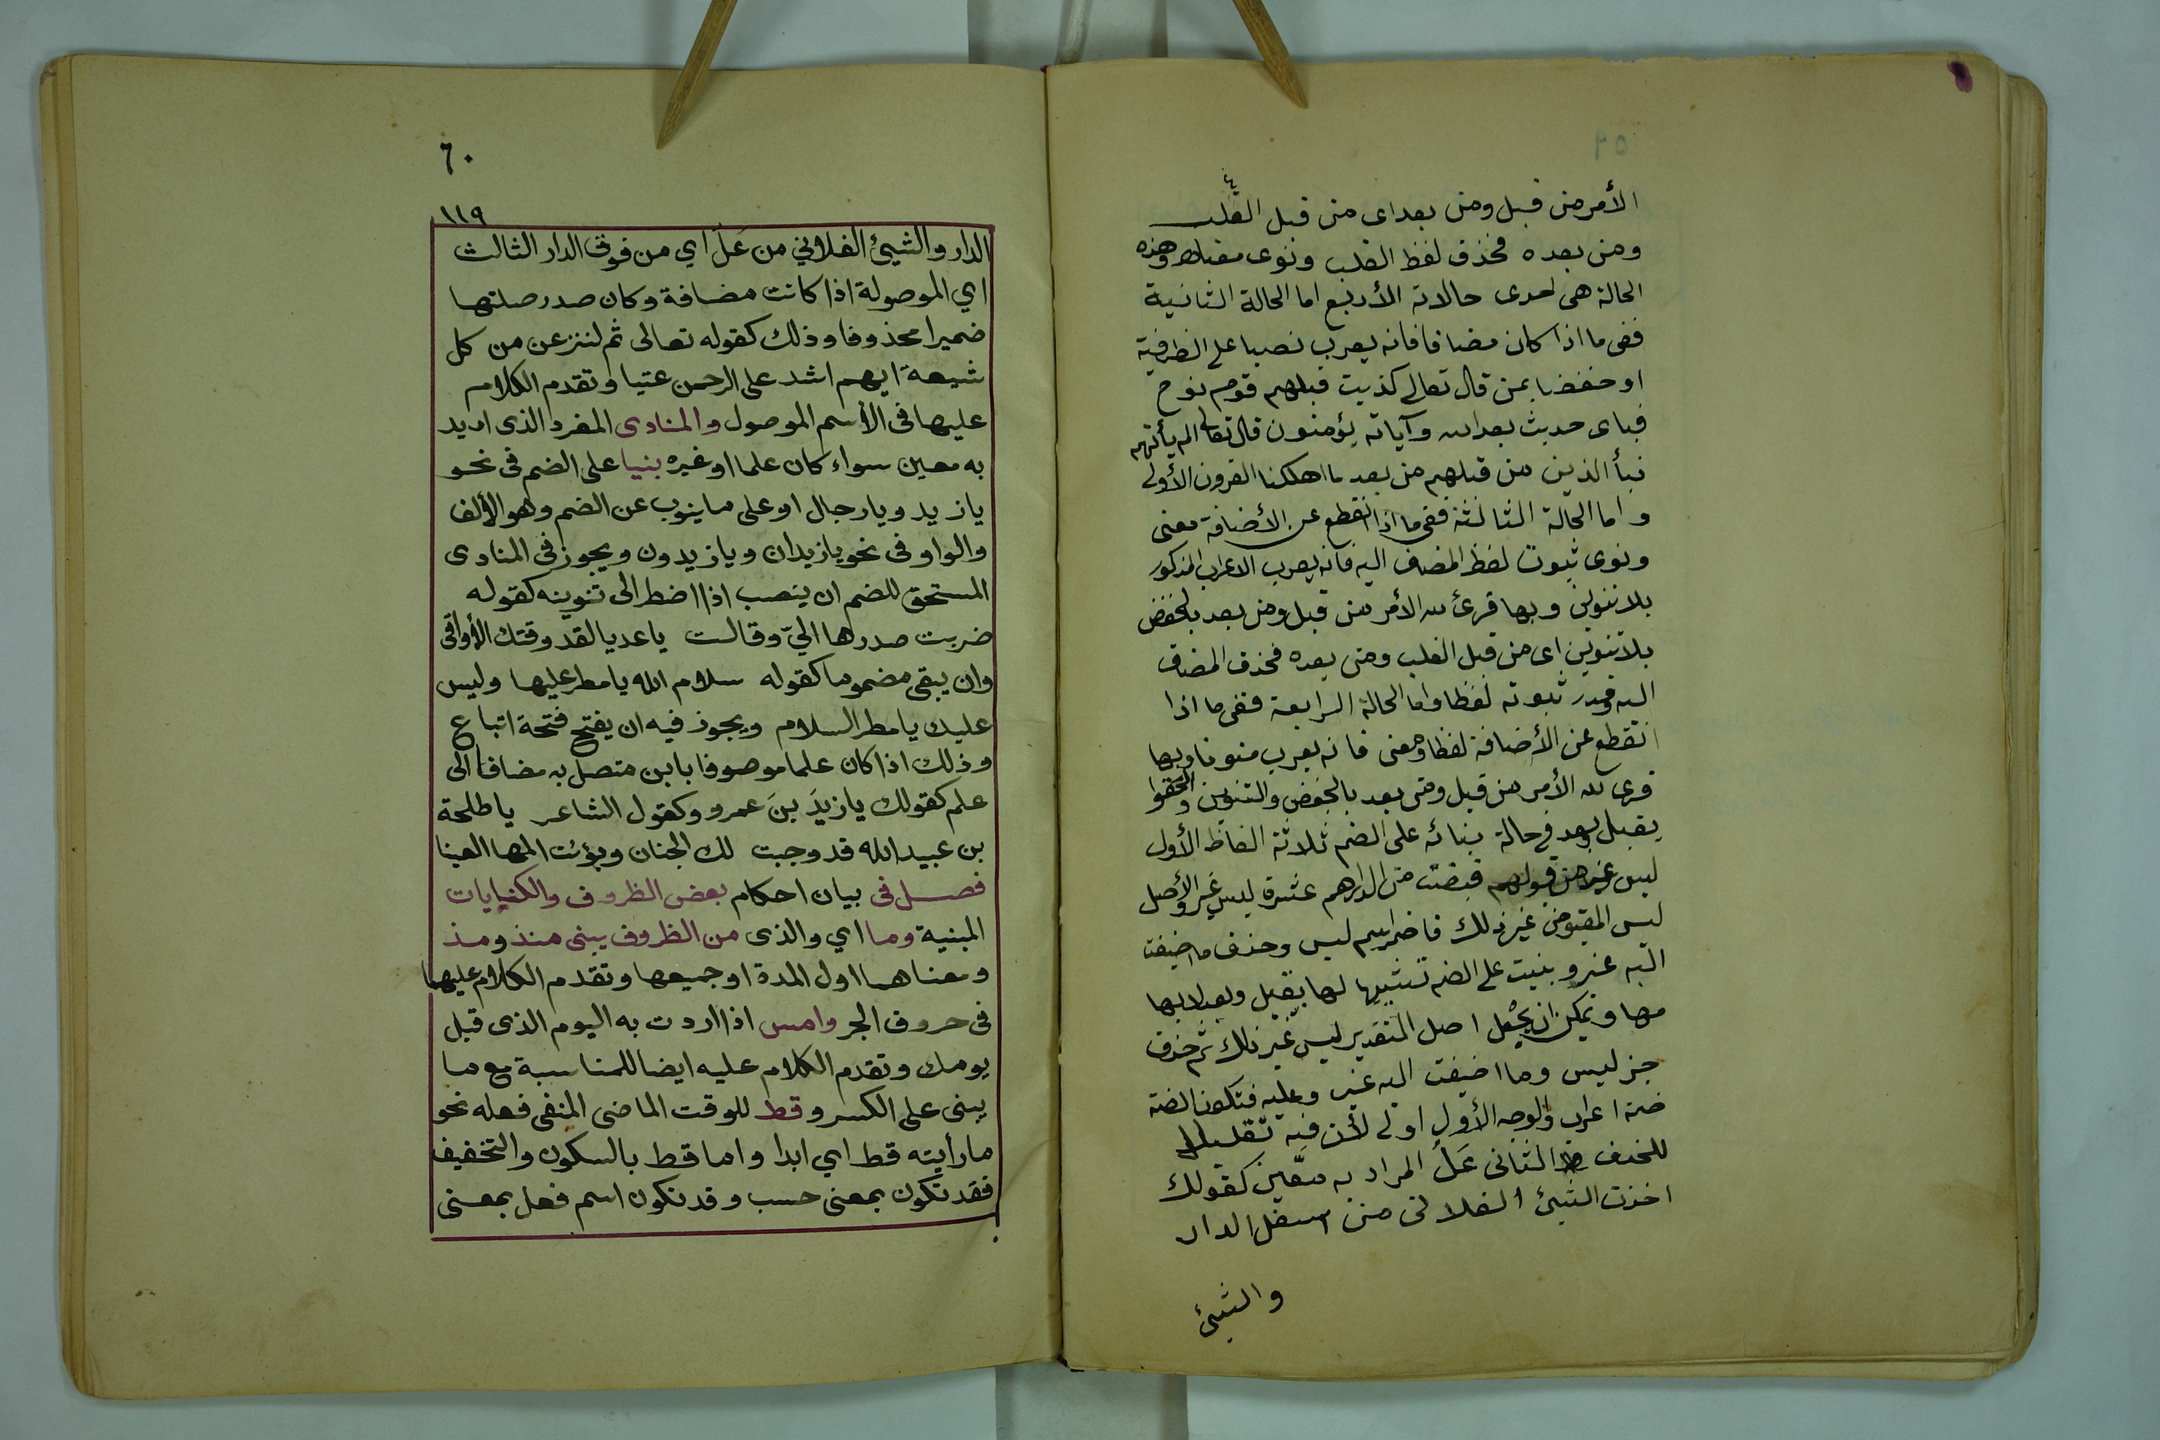 ٥٩
الأمر من قبل ومن بعد اى من قبل الغلب
ومن بعده فحذف لفظ الغلب ونوى معناه وهذه
الحالة هى احدى حالاته الأربع اما الحالة الثانية
ففى ما اذا كان مضافا فانه يعرب نصبا على الظرفية
او خفضا بمن قال تعالى كذبت قبلهم قوم نوح
فباى حديث بعد الله وآياته يؤمنون قال تعالى الم يأتهم
نبأ الذين من قبلهم من بعد ما اهلكنا القرون الأولى
واما الحالة الثالثة ففى ما اذا انقطع عن الأضافة معنى
ونوى ثبوت لفظ المضاف اليه فانه يعرب الاعراب المذكور
بلا تنوين وبها قرئ لله الأمر من قبل ومن بعد بالخفض
بلا تنوين اى من قبل الغلب ومن بعده فحذف المضاف
اليه وقدر ثبوته لفظا واما الحالة الرابعة ففى ما اذا
انقطع عن الأضافة لفظا ومعنى فانه يعرب منونا وبها
قرى لله الأمر من قبل ومن بعد بالخفض والتنوين والحقوا
بقبل وبعد فى حالة بنائه على الضم ثلاثة الفاظ الأول
ليس غير من قولهم قبضت من الدراهم عشرة ليس غير والأصل
ليس المقبوض غير ذلك فاضمر اسم ليس وحذف ما اضيفت
اليه غير وبنيت على الضم تشبيها لها بقبل وبعد لابهامها
ويمكن ان يجعل اصل التقدير ليس غير ذلك ثم حذف
خبر ليس وما اضيفت اليه غير وعليه فتكون الضمة
ضمة اعراب والوجه الأول اولى لأن فيه تقليلا
للحذف الثانى عَلُ المراد به معين كقولك
اخذت الشيئ الفلانى من اسفل الدار
والشيئ
٦٠
١١٩
الدار والشيئ الفلاني من عَلُ اي من فوق الدار الثالث
اي الموصولة اذا كانت مضافة وكان صدر صلتها
ضميرا محذوفا وذلك كقوله تعالى ثم لننزعن من كل
شيعة ايهم اشد على الرحمن عتيا وتقدم الكلام
عليها فى الأسم الموصول والمنادى المفرد الذى اريد
به معين سواء كان علما او غيره بنيا على الضم فى نحو
يا زيد ويا رجال او على ما ينوب عن الضم وهو الألف
والواو فى نحو يا زيدان ويا زيدون ويجوز فى المنادى
المستحق للضم ان ينصب اذا اضطر الى تنوينه كقوله
ضربت صدرها اليّ وقالت يا عديا لقد وقتك الأواقى
وان يبقى مضموما كقوله سلام الله يا مطر عليها وليس
عليك يا مطر السلام ويجوز فيه ان يفتح فتحة اتباع
وذلك اذا كان علما موصوفا بابن متصل به مضاف الى
علم كقولك يا زيدَ بنَ عمرو وكقول الشاعر يا طلحة
بن عبيد الله قد وجبت لك الجنان وبوئت المها العينا
فصل فى بيان احكام بعض الظروف والكنايات
المبنية وما اي والذى من الظروف يبنى منذ ومذ
ومعناهما اول المدة او جميعها وتقدم الكلام عليهما
فى حروف الجر وامس اذا اردت به اليوم الذى قبل
يومك وتقدم الكلام عليه ايضا للمناسبة مع ما
يبنى على الكسر وقط للوقت الماضى المنفى فعله نحو
ما رأيته قط اي ابدا واما قط بالسكون والتخفيف
فقد تكون بمعنى حسب وقد تكون اسم فعل بمعنى